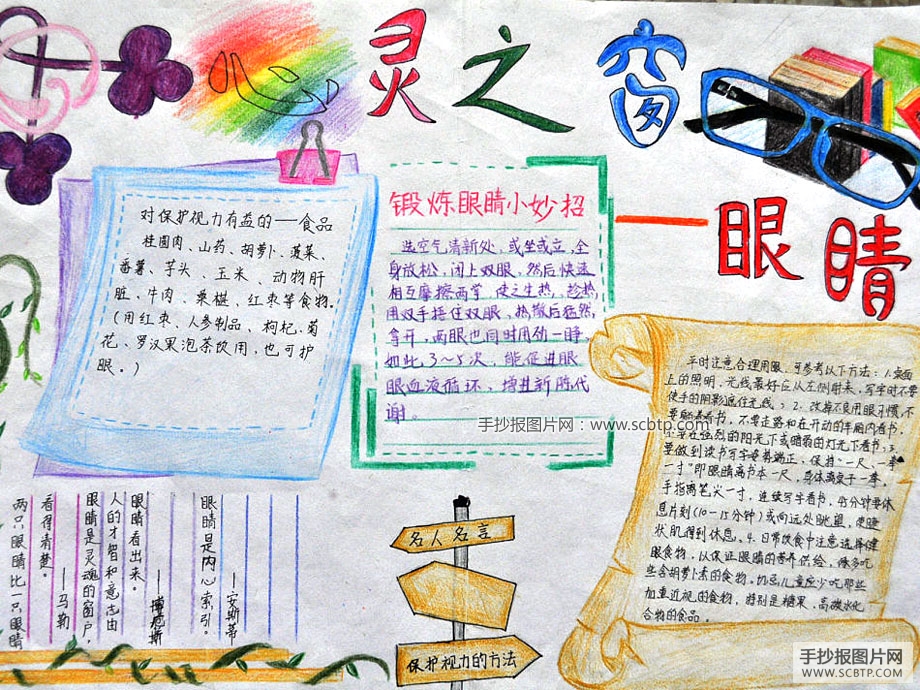 心灵之窗
一眼睛
对保护视力有益的——食品
桂圆肉、山药、胡萝卜、菠菜、
番薯、芋头、玉米、动物肝
脏、牛肉、桑椹、红枣等食物。
(用红枣、人参制品、枸杞、菊
花、罗汉果泡茶饮用,也可护
眼。)
锻炼眼睛小妙招
选空气清新处,或坐或立,全
身放松,闭上双眼,然后快速
相互摩擦两掌,使之生热,趁热
用双手捂住双眼,热散后猛然
拿开,两眼也同时用劲一睁,
如此3~5次,能促进眼
眼血液循环,增进新陈代
谢。
手抄报图片网:www.scbtp.com
平时注意合理用眼,可参考以下方法:1.桌面
上的照明,光线最好应从左侧射来,写字时不要
使手的阴影遮住光线;2.改掉不良用眼习惯,不
要躺着看书,不要走路和在开动的车厢内看书,
不要在强烈的阳光下或暗弱的灯光下看书;3.
要做到读书写字姿势端正,保持“一尺、一拳、
一寸”即眼睛离书本一尺,身体离桌子一拳,
手指离笔尖一寸,连续写字看书,40分钟要休
息片刻(10-15分钟)或向远处眺望,使睫
状肌得到休息。4.日常饮食中注意选择健
眼食物,以保证眼睛的营养供给,像多吃
些含胡萝卜素的食物。切忌儿童应少吃那些
加重近视的食物,特别是糖果、高碳水化
合物的食品。
眼睛是内心索引。
——安斯蒂
人的才智和意志由
眼睛看出来。
——博厄斯
眼睛是灵魂的窗户。
两只眼睛比一只眼睛
看得清楚。
——马勒
名人名言
保护视力的方法
手抄报图片网
WWW.SCBTP.COM